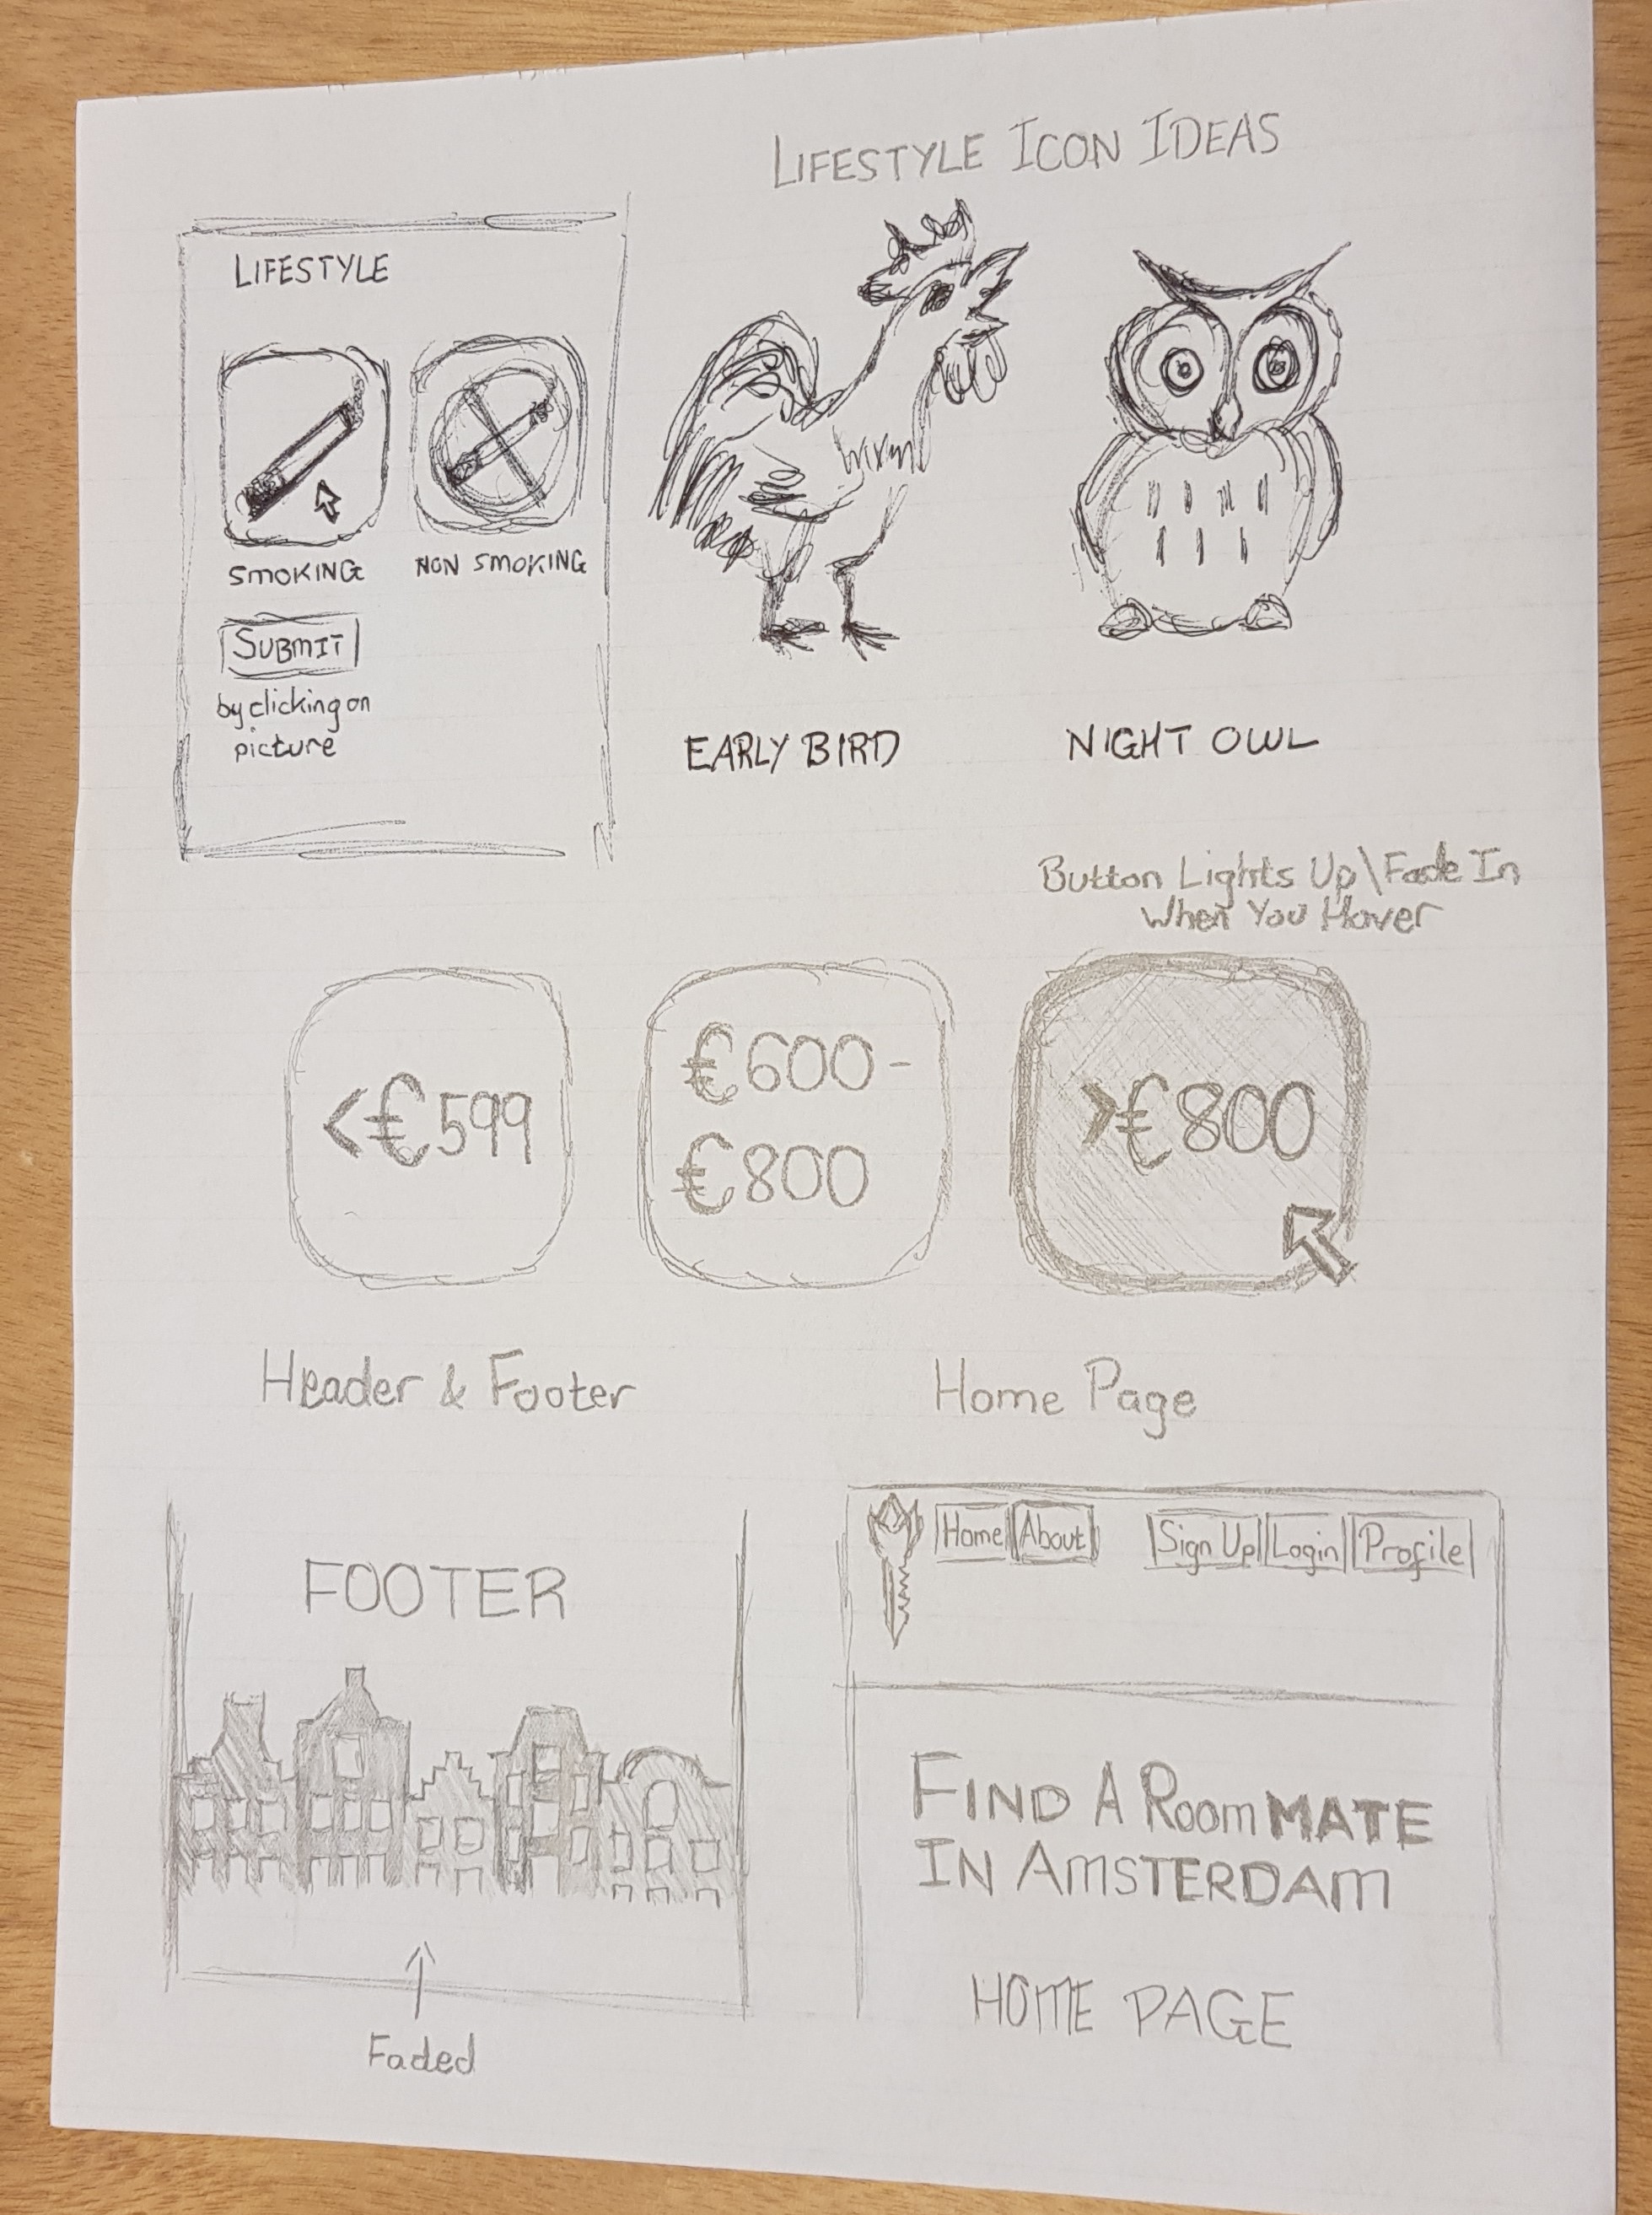 LIFESTYLE ICON IDEAS
LIFESTYLE
SMOKING
NON SMOKING
SUBMIT
by clicking on
picture
EARLY BIRD
NIGHT OWL
Button Lights Up\Fade In
When You Hover
<€599
€600-
€800
>€800
Header & Footer
Home Page
FOOTER
Faded
Home About Sign Up Login Profile
FIND A RoomMATE
IN AMSTERDAM
HOME PAGE